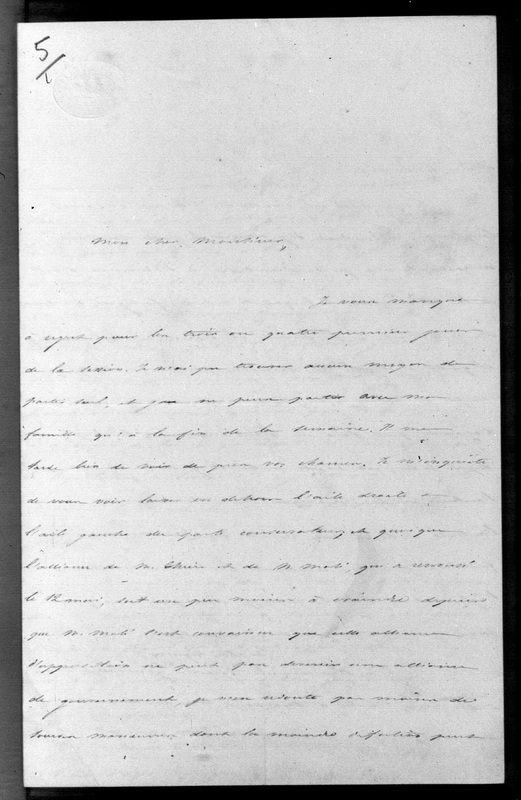 5/
Mon cher Monsieur,
Je vous manque
à regret pour les trois ou quatre premiers jours
de la session. Je n'ai pu trouver aucun moyen de
partir seul, et je ne peux partir avec ma
famille qu'à la fin de la semaine. Il me
tarde bien de voir de près vos chances. Je m'inquiète
de vous voir laisser en dehors l'aile droite et
l'aile gauche du parti conservateur, et quoique
l'alliance de M. Thiers et de M. Molé, qui a
le 12 mai, soit un peu moins à craindre depuis
que M. Molé s'est convaincu que cette alliance
d'opposition ne peut pas devenir une alliance
de gouvernement, je n'en redoute pas moins de
manœuvres dont la moindre peut